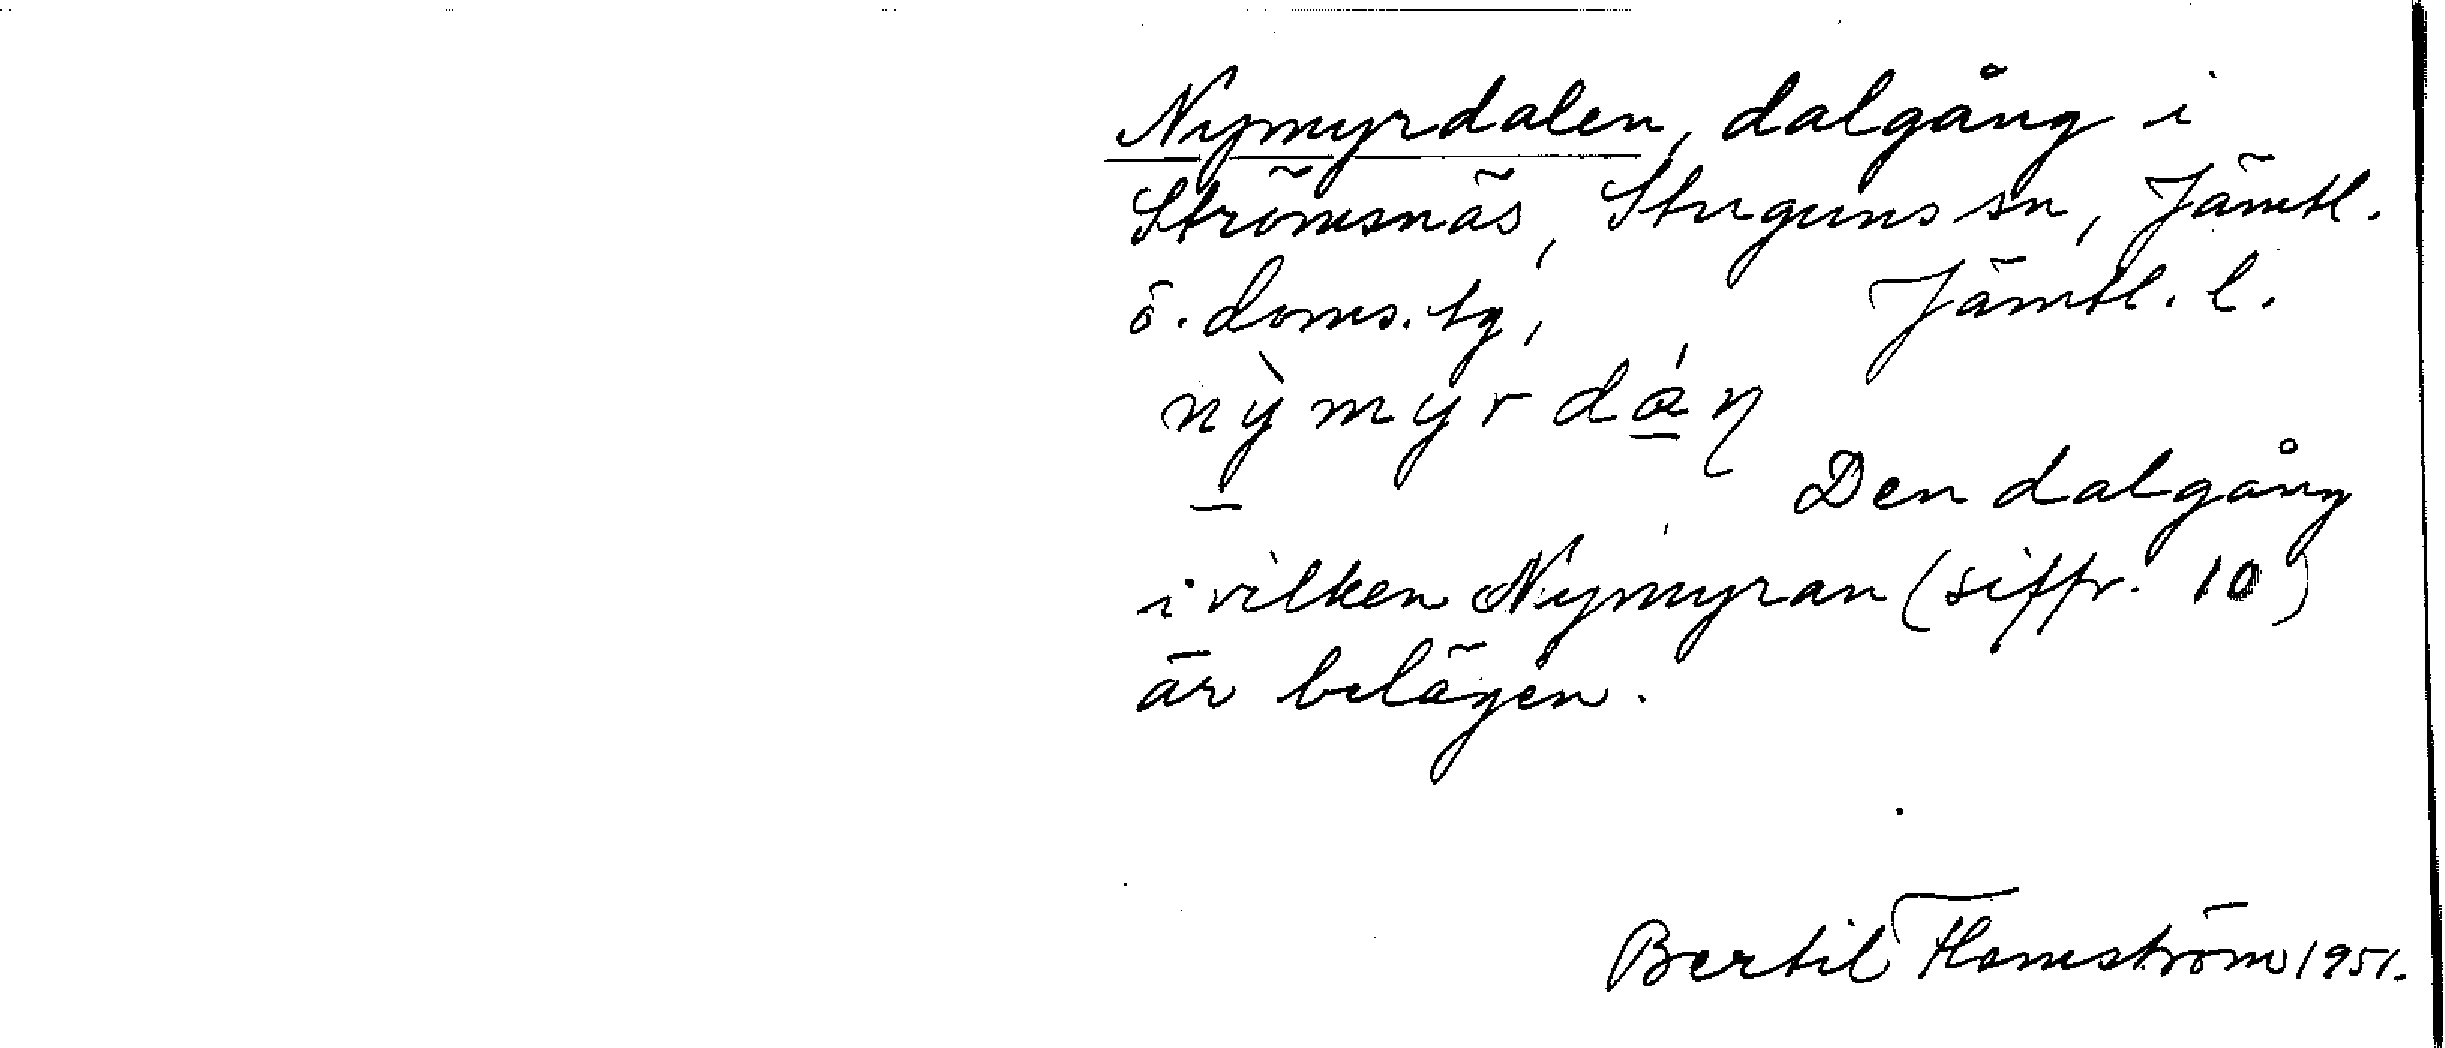 Nymyrdalen, dalgång i
Strömsnäs, Stuguns sn, Jämtl.
ö. doms. tg, Jämtl. l.
nỳmyrdáŋ
Den dalgång
i vilken Nymyran (siffr. 10)
är belägen.
Bertil Flemström 1951.